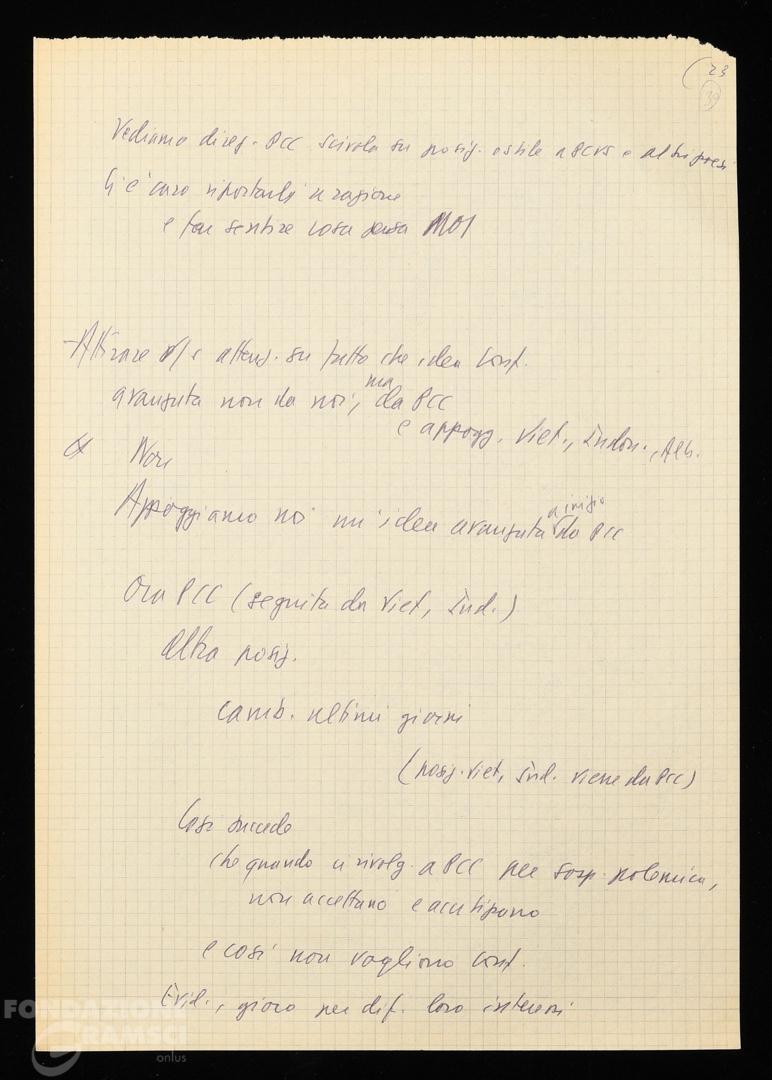 (23
30
Vediamo direz. PCC scivola su posiz. ostile a PCUS e altri paesi
Ci è caro riportarli a ragione
e far sentire cosa pensa MOI
- Attirare v/s attenz. su fatto che idea conf.
avanzata non da noi, ma da PCC
e appogg. Viet., Indon., Alb.
Non
Appoggiamo noi un'idea avanzata a inizio da PCC
Ora PCC (seguita da Viet, Ind.)
altra posiz.
camb. ultimi giorni
(posiz. Viet, Ind. viene da PCC)
Così succede
che quando ci rivolg. a PCC per sosp. polemica,
non accettano e acutizzano
e così non vogliono conf.
Evid., gioco per dif. loro interessi
FONDAZIONE
GRAMSCI
onlus